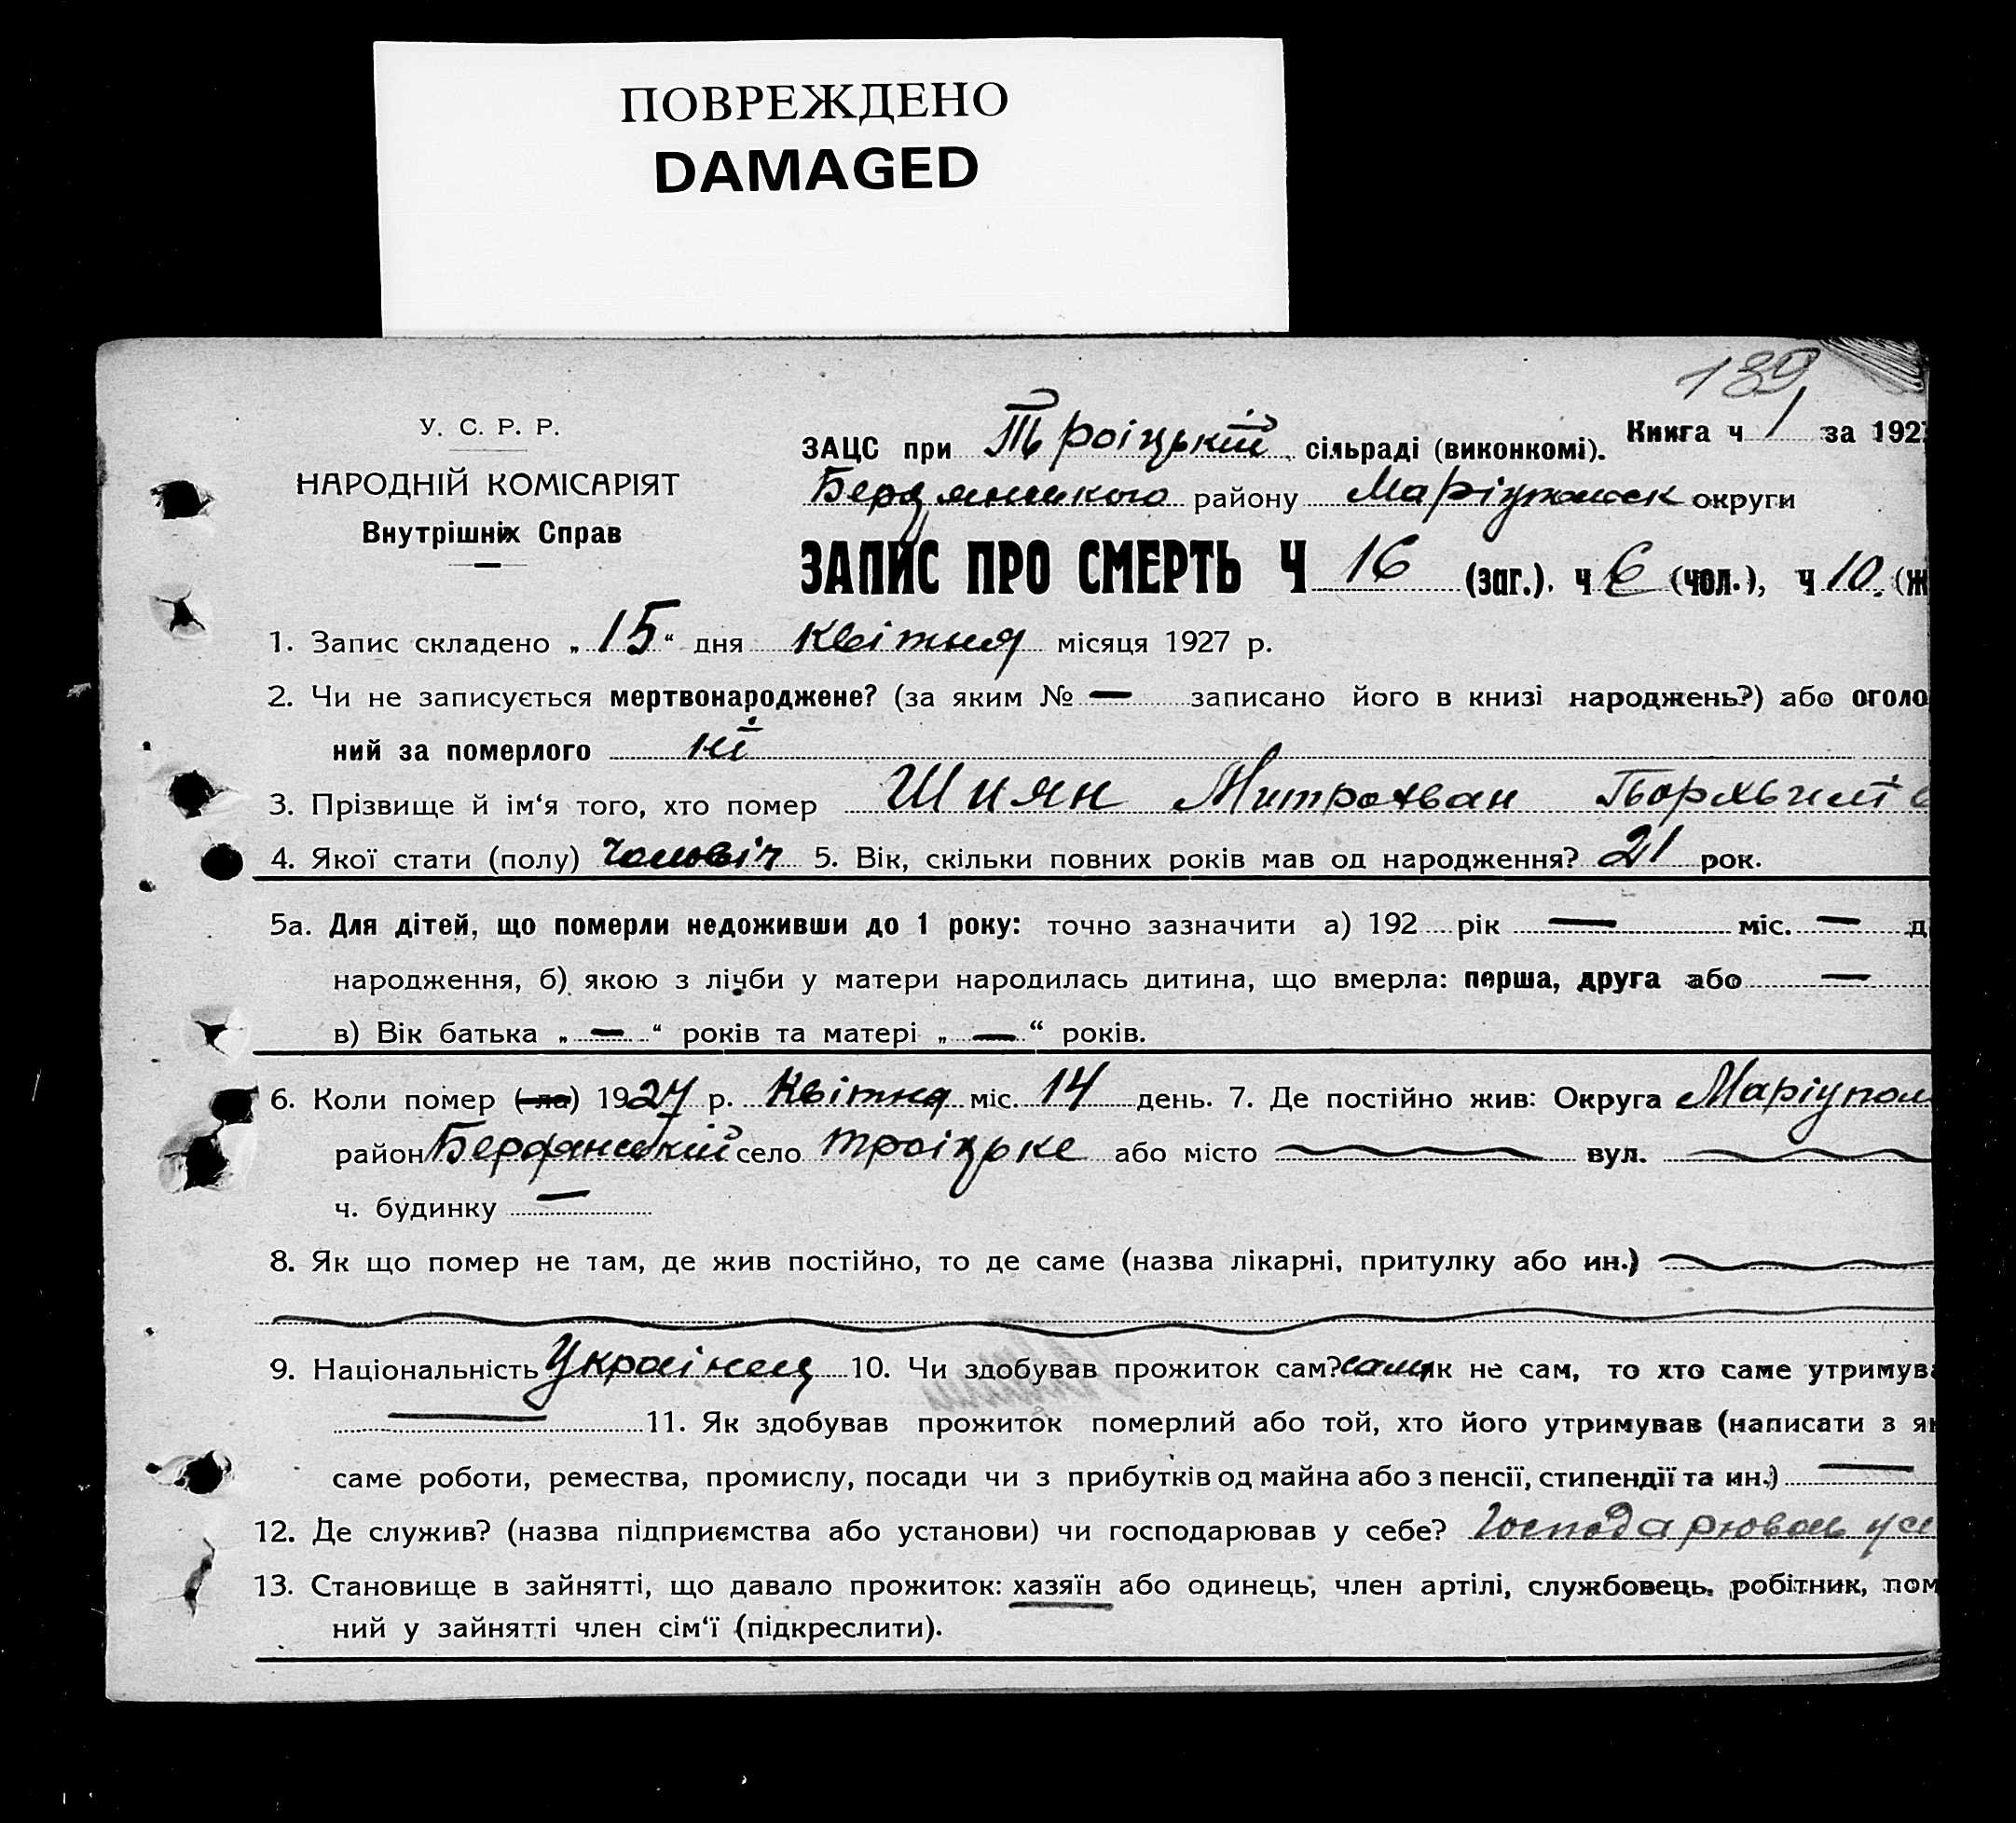 ПОВРЕЖДЕНО
DAMAGED
139
У. С. Р. Р.
НАРОДНІЙ КОМІСАРІЯТ
Внутрішніх Справ
ЗАЦС при Троіцькій сільраді (виконкомі). Книга ч 1 за 1927
Бердянського району Маріупольськ округи
ЗАПИС ПРО СМЕРТЬ Ч 16 (заг.). ч 6 (чол.), ч 10. (ж
1. Запис складено „15“ дня квітня місяця 1927 р.
2. Чи не записується мертвонароджене? (за яким № — записано його в книзі народжень?) або оголо
ний за померлого ні
3. Прізвище й ім‘я того, хто помер Шиян Митрофан
4. Якої стати (полу) чоловіч 5. Вік, скільки повних років мав од народження? 21 рок.
5а. Для дітей, що померли недоживши до 1 року: точно зазначити а) 192 рік — міс. — д
народження, б) якою з лічби у матери народилась дитина, що вмерла: перша, друга або —
в) Вік батька „—“ років та матері „—“ років.
6. Коли помер (-ла) 1927 р. Квітня міс. 14 день. 7. Де постійно жив: Округа Маріупол
район Бердянський село троіцьке або місто вул.
ч. будинку —
8. Як що помер не там, де жив постійно, то де саме (назва лікарні, притулку або ин.)
9. Національність Украінец 10. Чи здобував прожиток сам? сам як не сам, то хто саме утримува
— 11. Як здобував прожиток померлий або той, хто його утримував (написати з як
саме роботи, ремества, промислу, посади чи з прибутків од майна або з пенсії, стипендії та ин.) —
12. Де служив? (назва підприємства або установи) чи господарював у себе? Господарював у се
13. Становище в зайнятті, що давало прожиток: хазяїн або одинець, член артілі, службовець, робітник, пом
ний у зайнятті член сім‘ї (підкреслити).